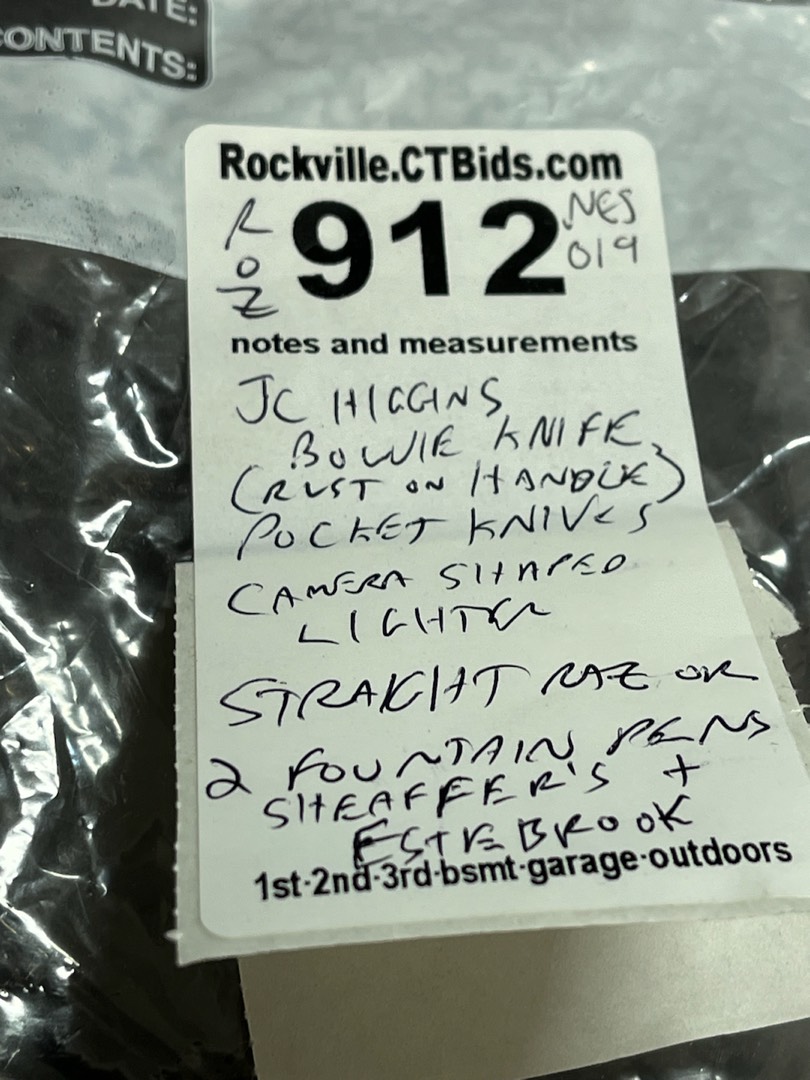 DATE:
CONTENTS:
Rockville.CTBids.com
ROZ 912 NES
019
notes and measurements
JC HIGGINS
BOWIE KNIFE
(RUST ON HANDLE)
POCKET KNIVES
CAMERA SHAPED
LIGHTER
STRAIGHT RAZOR
2 FOUNTAIN PENS
SHEAFFER'S +
ESTEBROOK
1st·2nd·3rd·bsmt·garage·outdoors